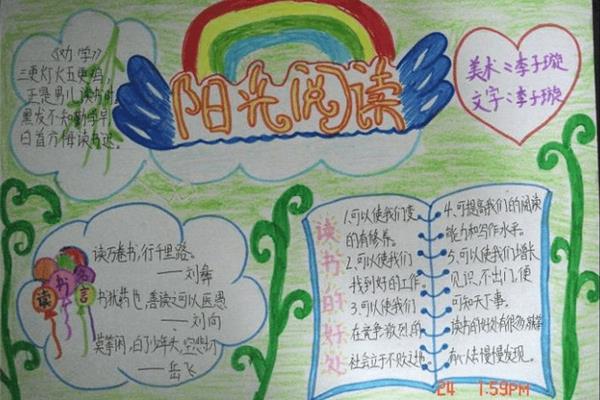 《劝学》
三更灯火五更鸡,
正是男儿读书时。
黑发不知勤学早,
白首方悔读书迟。
阳光阅读
美术:李子璇
文字:李子璇
读书名言
读万卷书,行千里路。
——刘彝
书犹药也,善读之可以医愚
——刘向
莫等闲,白了少年头,空悲切
——岳飞
读书的好处
1.可以使我们变
的有修养。
2.可以使我们
找到好的工作。
3.可以使我们
在竞争激烈的
社会立于不败之地。
4.可提高我们的阅读
能力和写作水平。
5.可以使我们增长
见识,不出门,便
可知天下事。
读书的好处有很多,等着
有心人去慢慢发现。
24 1:59PM